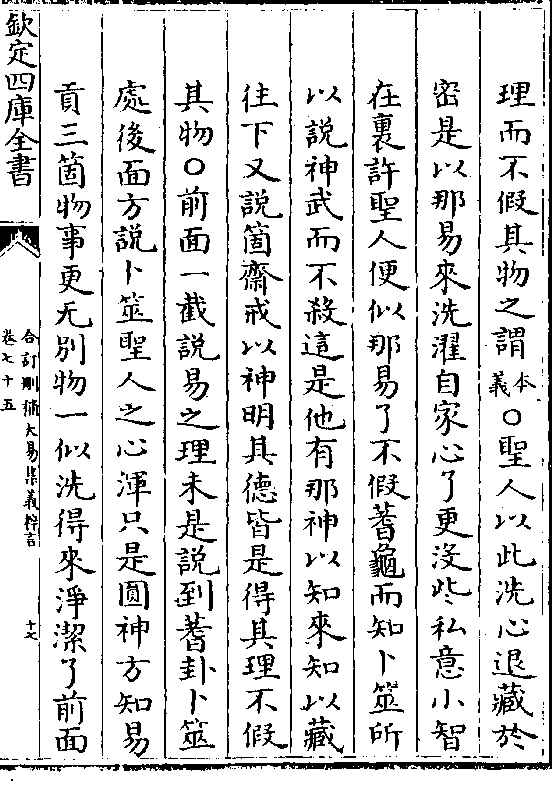 理而不假其物之謂本義○聖人以此洗心退藏於
密是以那易來洗濯自家心了更沒些私意小智
在裏許聖人便似那易了不假蓍龜而知卜筮所
以說神武而不殺這是他有那神以知來知以藏
往下又說箇齋戒以神明其德皆是得其理不假
其物○前面一截說易之理未是說到蓍卦卜筮
處後面方說卜筮聖人之心渾只是圓神方知易
貢三箇物事更无別物一似洗得來淨潔了前面
欽定四庫全書
合訂刪補大易集義粹言
卷七十五
十七